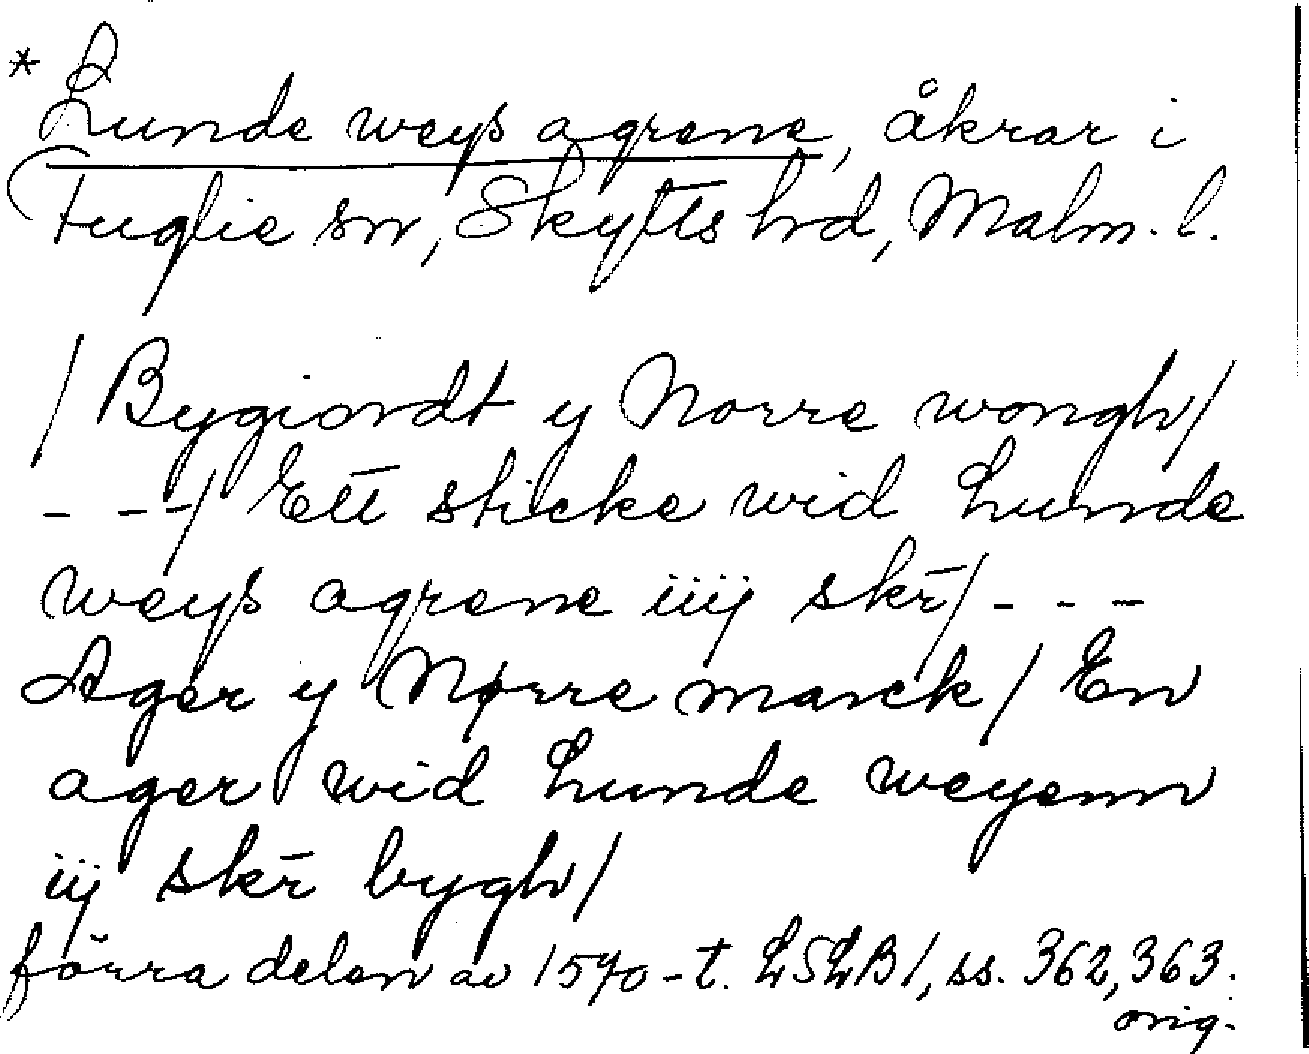 * Lunde weys agrene, åkrar i
Fuglie sn, Skytts hd, Malm. l.
/ Bygiordt y Norre wongh/
- - -/ Ett sticke wid Lunde
weys agrene iiij skr̄/ - - -
Ager y Nørre marck/ En
ager wid Lunde weyenn
iij skr̄ bygh/
förra delen av 1570-t. LSLB1, ss. 362, 363.
orig.